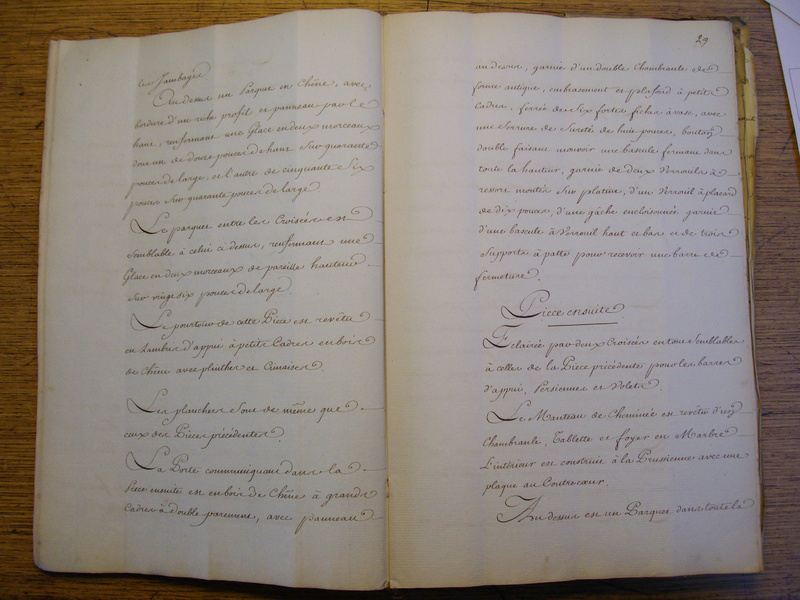 les Jambages
Au dessus un Parquet en Chêne, avec
bordure d'un riche profil et panneau par le
haut, renfermant une Glace en deux morceaux
dont un de douze pouces de haut Sur quarante
pouces de large, et l'autre de cinquante Six
pouces Sur quarante pouces de large
Le parquet entre les Croisées est
Semblable à celui ci dessus, renfermant une
Glace en deux morceaux de pareille hauteur
Sur vingt six pouces de large.
Le pourtour de cette Piece est revêtu
en Lambris d'appui à petits Cadres en bois
de Chêne avec plinthes et Cimaises.
Les planchers Sont de même que
ceux des Pieces précédentes.
La Porte communiquant dans la
Piece ensuite est en bois de Chêne à grands
Cadres à double parement, avec panneau
29
au dessus, garnie d'un double Chambranle de
forme antique, embrasement et plafond à petits
Cadres, ferrée de Six fortes fiches à vase, avec
une Serrure de Sureté de huit pouces, bouton
double faisant mouvoir une bascule fermant dans
toute la hauteur, garnie de deux Verrouils à
ressort montés Sur platine, d'un Verrouil à placard
de dix pouces, d'une gâche encloisonnée garnie
d'une bascule à Verrouil haut et bas et de trois
Supports à patte pour recevoir une barre de
fermeture.
Piece ensuite
Eclairée par deux Croisées en tout Semblables
à celles de la Piece précédente pour les barres
d'appui, Persiennes et Volets.
Le Manteau de Cheminée est revêtu d'un
Chambranle, Tablette et foyer en Marbre
L'intérieur est construit à la Prussienne avec une
plaque au Contrecœur.
Au dessus est un Parquet dans toute la